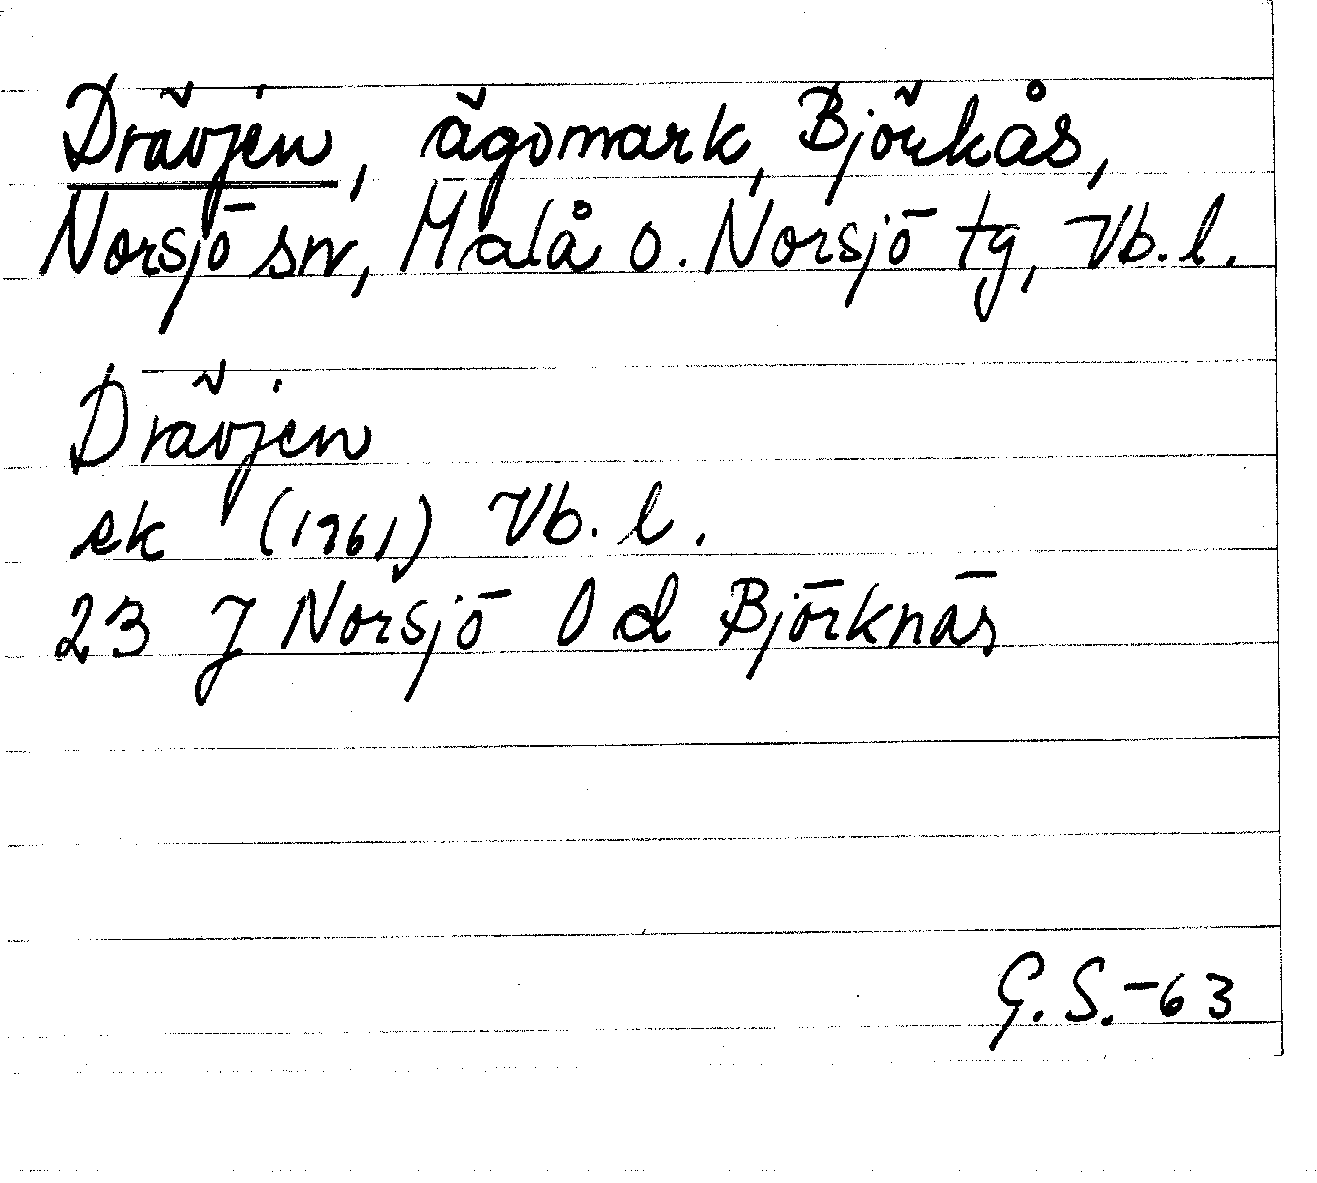 Drävjen, ägomark, Björkås,
Norsjö sn, Malå o. Norsjö tg, Vb. l.
Drävjen
ek (1961) Vb. l.
23 J Norsjö 0 d Björknäs
G. S. -63